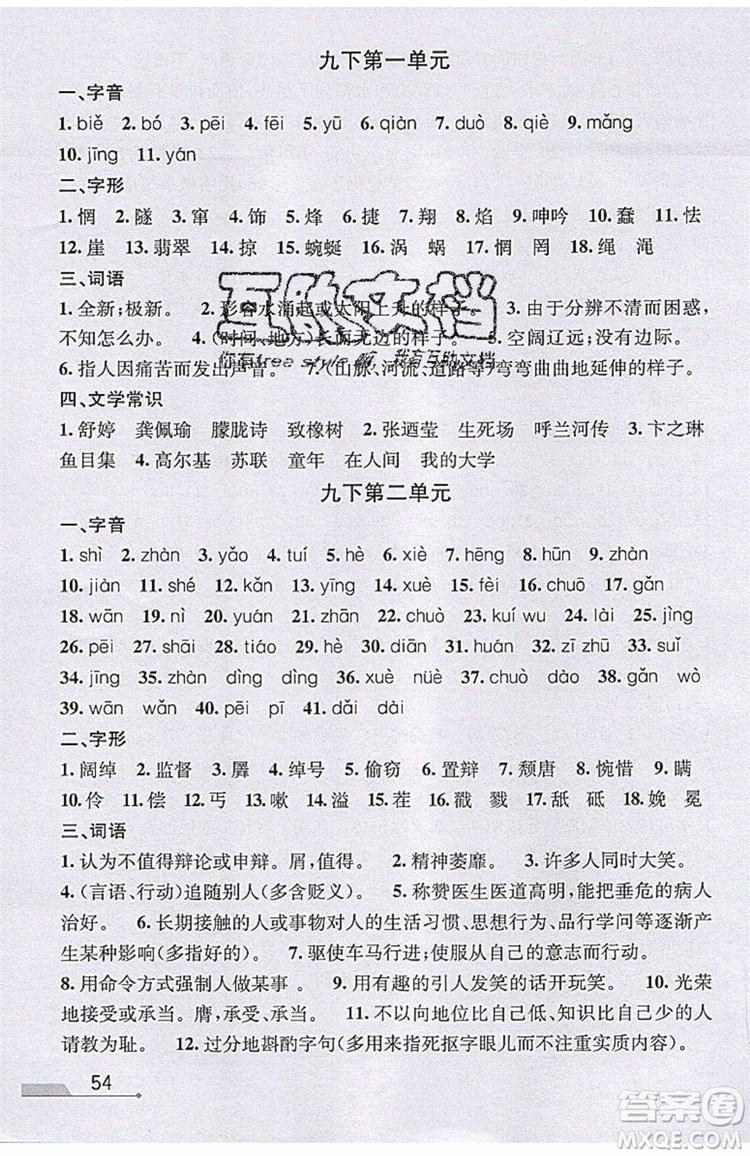 九下第一单元
一、字音
1. biě 2. bó 3. pēi 4. fēi 5. yū 6. qiàn 7. duò 8. qiè 9. mǎng
10. jīng 11. yán
二、字形
1. 惘 2. 隧 3. 窜 4. 饰 5. 烽 6. 捷 7. 翔 8. 焰 9. 呻吟 10. 蠢 11. 怯
12. 崖 13. 翡翠 14. 掠 15. 蜿蜒 16. 涡 蜗 17. 惘 罔 18. 绳 渑
三、词语
1. 全新;极新。 2. 形容水涌起或太阳上升的样子。 3. 由于分辨不清而困惑,
不知怎么办。 4. (时间、地方)长而无边的样子。 5. 空阔辽远;没有边际。
6. 指人因痛苦而发出声音。 7. (山脉、河流、道路等)弯弯曲曲地延伸的样子。
互助文档
你有free style啊, 我有互助文档
四、文学常识
1. 舒婷 龚佩瑜 朦胧诗 致橡树 2. 张迺莹 生死场 呼兰河传 3. 卞之琳
鱼目集 4. 高尔基 苏联 童年 在人间 我的大学
九下第二单元
一、字音
1. shì 2. zhàn 3. yǎo 4. tuí 5. hè 6. xiè 7. hēng 8. hùn 9. zhàn
10. jiàn 11. shé 12. kǎn 13. yīng 14. xuè 15. fèi 16. chuō 17. gǎn
18. wān 19. nì 20. yuán 21. zhān 22. chuò 23. kuí wu 24. lài 25. jìng
26. pēi 27. shāi 28. tiáo 29. hè 30. diān 31. huàn 32. zī zhū 33. suǐ
34. jīng 35. zhān dìng dīng 36. xuè nüè 37. chuò dào 38. gǎn wò
39. wān wǎn 40. pēi pī 41. dǎi dài
二、字形
1. 阔绰 2. 监督 3. 羼 4. 绰号 5. 偷窃 6. 置辩 7. 颓唐 8. 惋惜 9. 瞒
10. 伶 11. 偿 12. 丐 13. 嗽 14. 溢 15. 茬 16. 戳 戮 17. 舐 砥 18. 娩 冕
三、词语
1. 认为不值得辩论或申辩。屑,值得。 2. 精神萎靡。 3. 许多人同时大笑。
4. (言语、行动)追随别人(多含贬义)。 5. 称赞医生医道高明,能把垂危的病人
治好。 6. 长期接触的人或事物对人的生活习惯、思想品行学问等逐渐产
生某种影响(多指好的)。 7. 驱使车马行进;使服从自己的意志而行动。
8. 用命令方式强制人做某事。 9. 用有趣的引人发笑的话开玩笑。 10. 光荣
地接受或承当。膺,承受、承当。 11. 不以向地位比自己低、知识比自己少的人
请教为耻。 12. 过分地斟酌字句(多用来指死抠字眼儿而不注重实质内容)。
54
答案圈